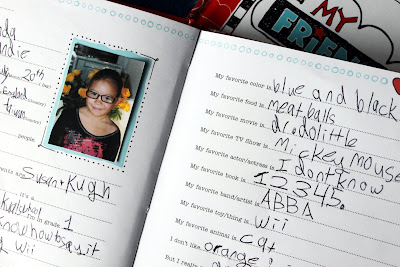 MY
FRIEND
20th
people.
Susan + Kugh
it's a
I'm in grade 1
know how to say it
wii
My favorite color is blue and black
My favorite food is meat balls
My favorite movie is dr. dolittle
My favorite TV Show is mickey mouse
My favorite actor/actress is I dont know
My favorite book is 12345.
My favorite band/artist is ABBA
My favorite toy/thing is wii
My favorite animal is cat
I don't like orange
But I really